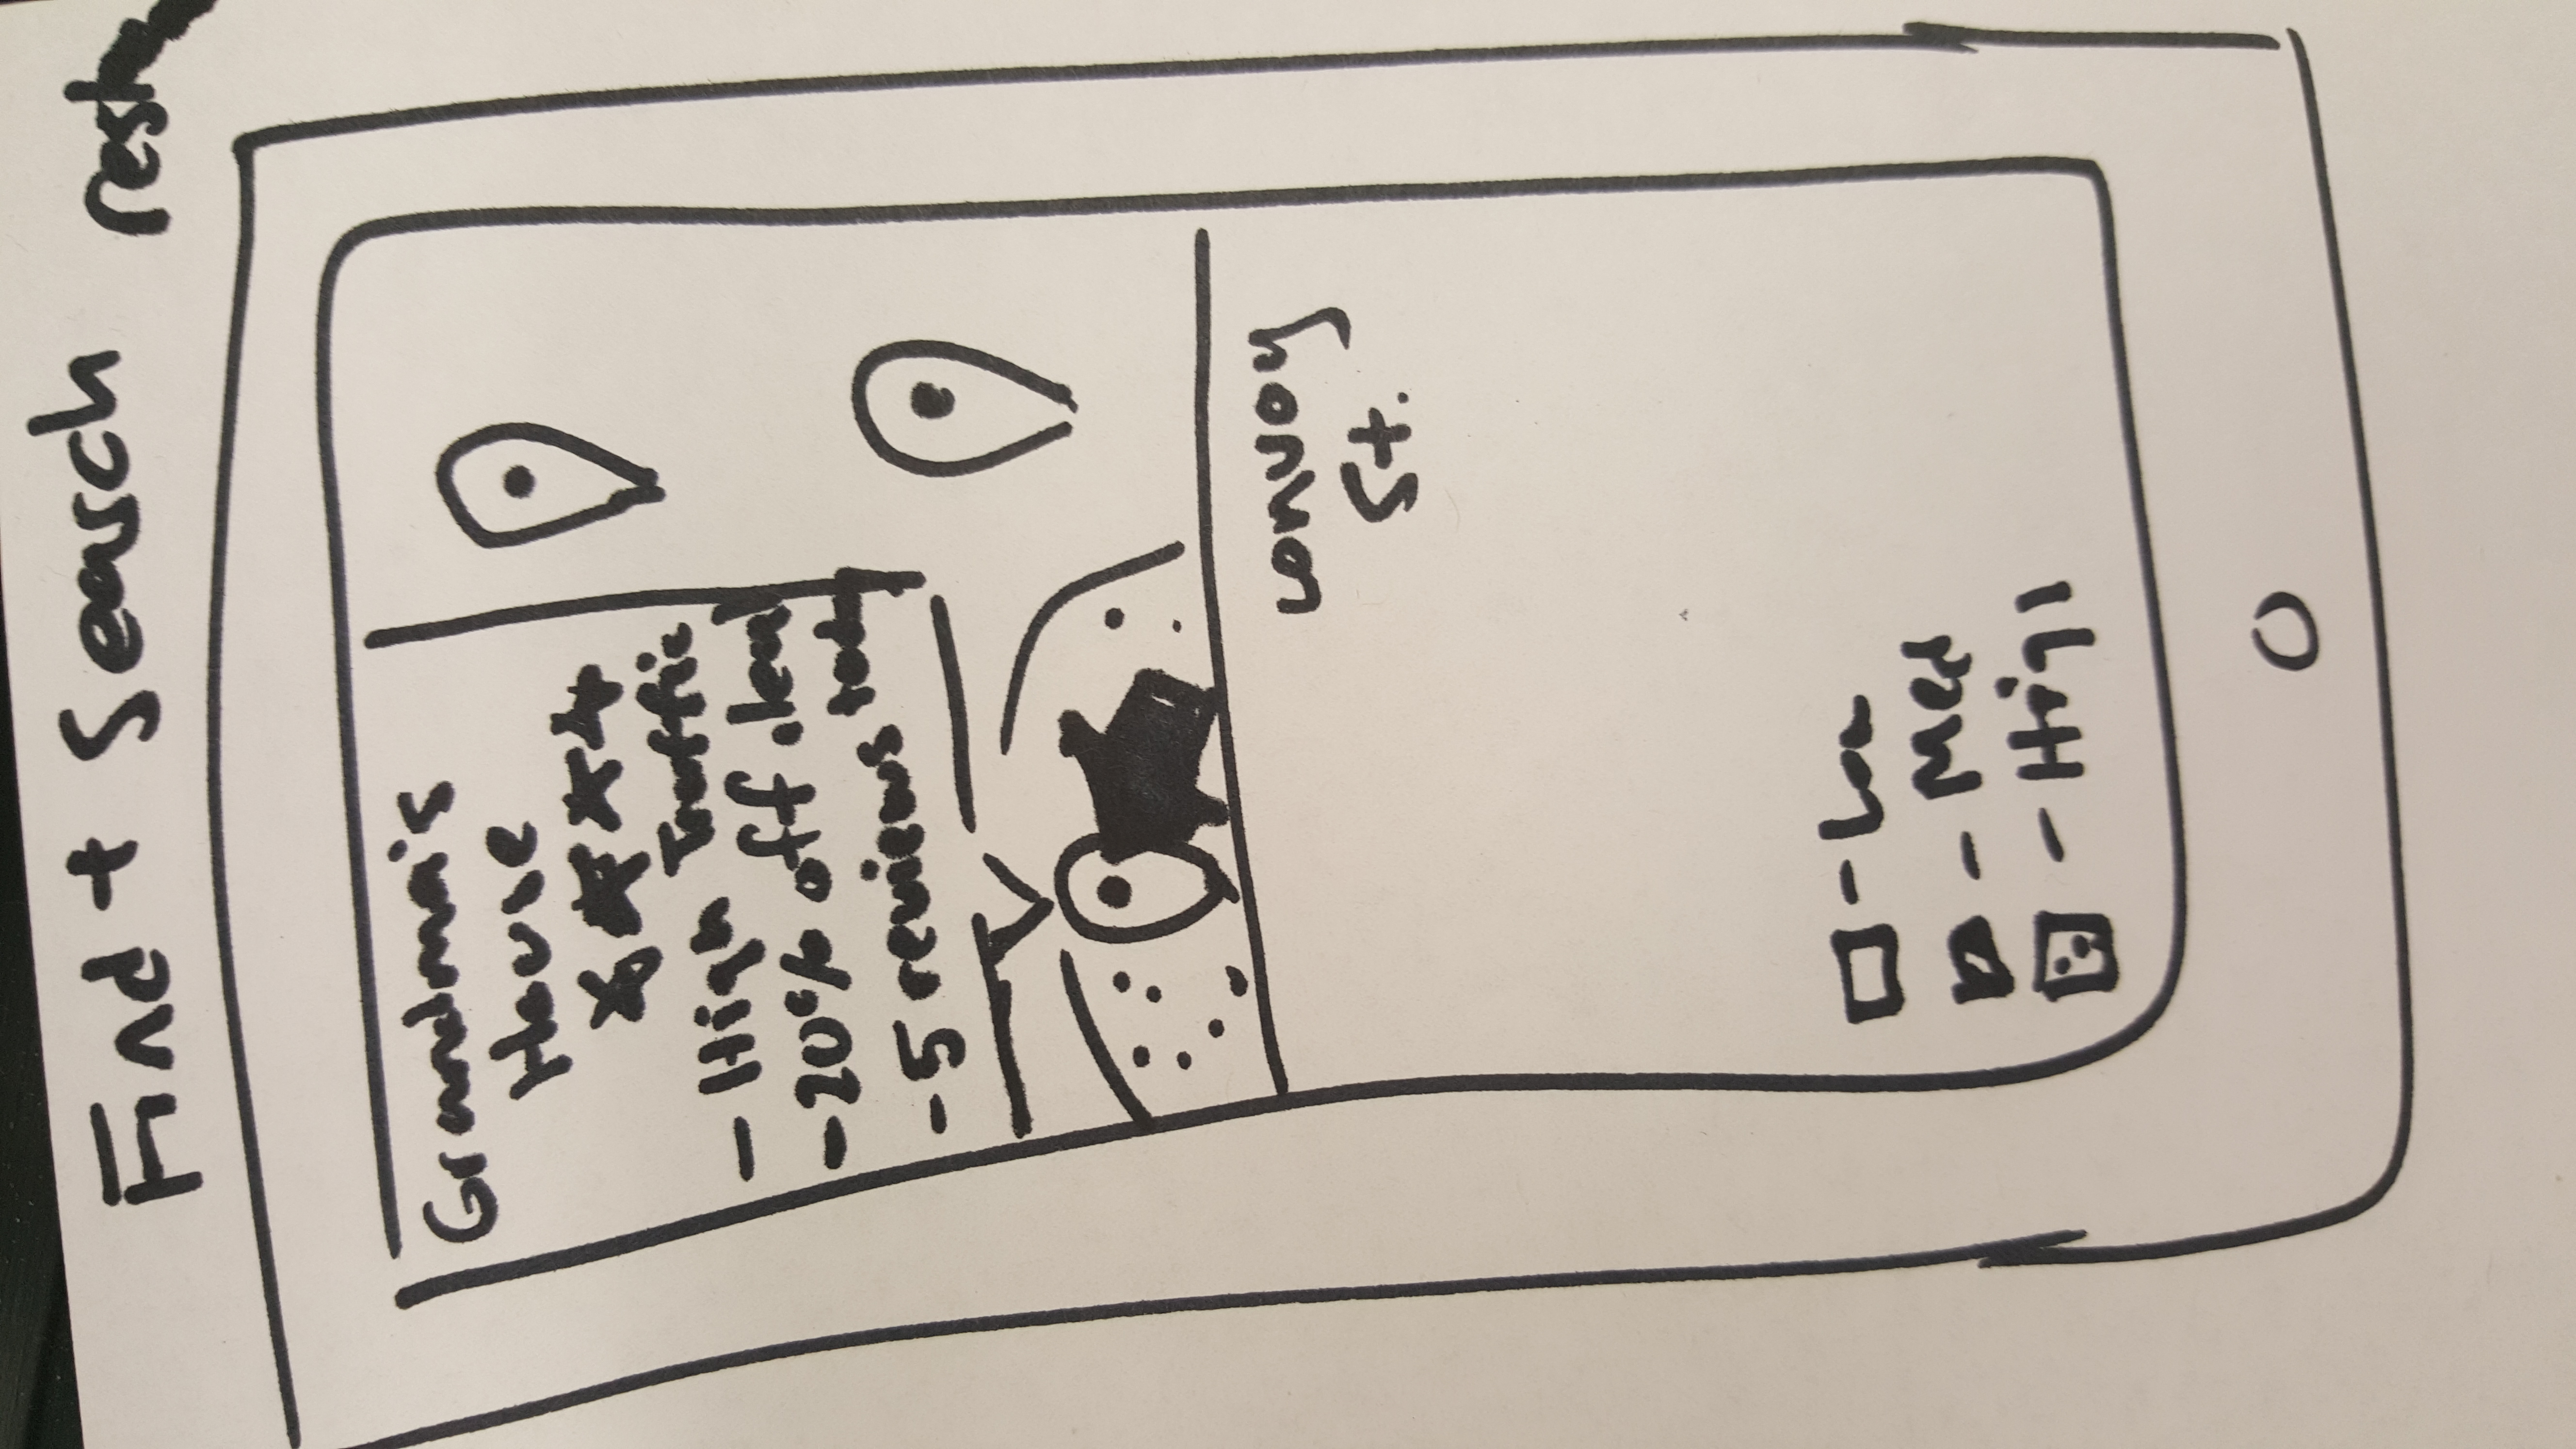 Find + Search
Grandma's
House
- High Traffic
- 20% off deal
- 5 reviews today
Convoy
St.
- Low
- Med
- High